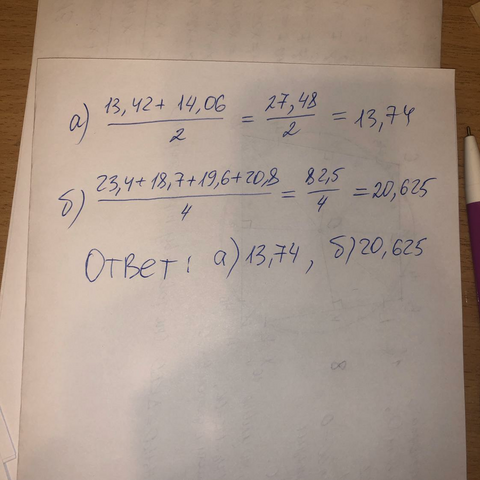 а) 13,42 + 14,06 / 2 = 27,48 / 2 = 13,74
б) 23,4+18,7+19,6+20,8 / 4 = 82,5 / 4 = 20,625
Ответ: а) 13,74, б) 20,625